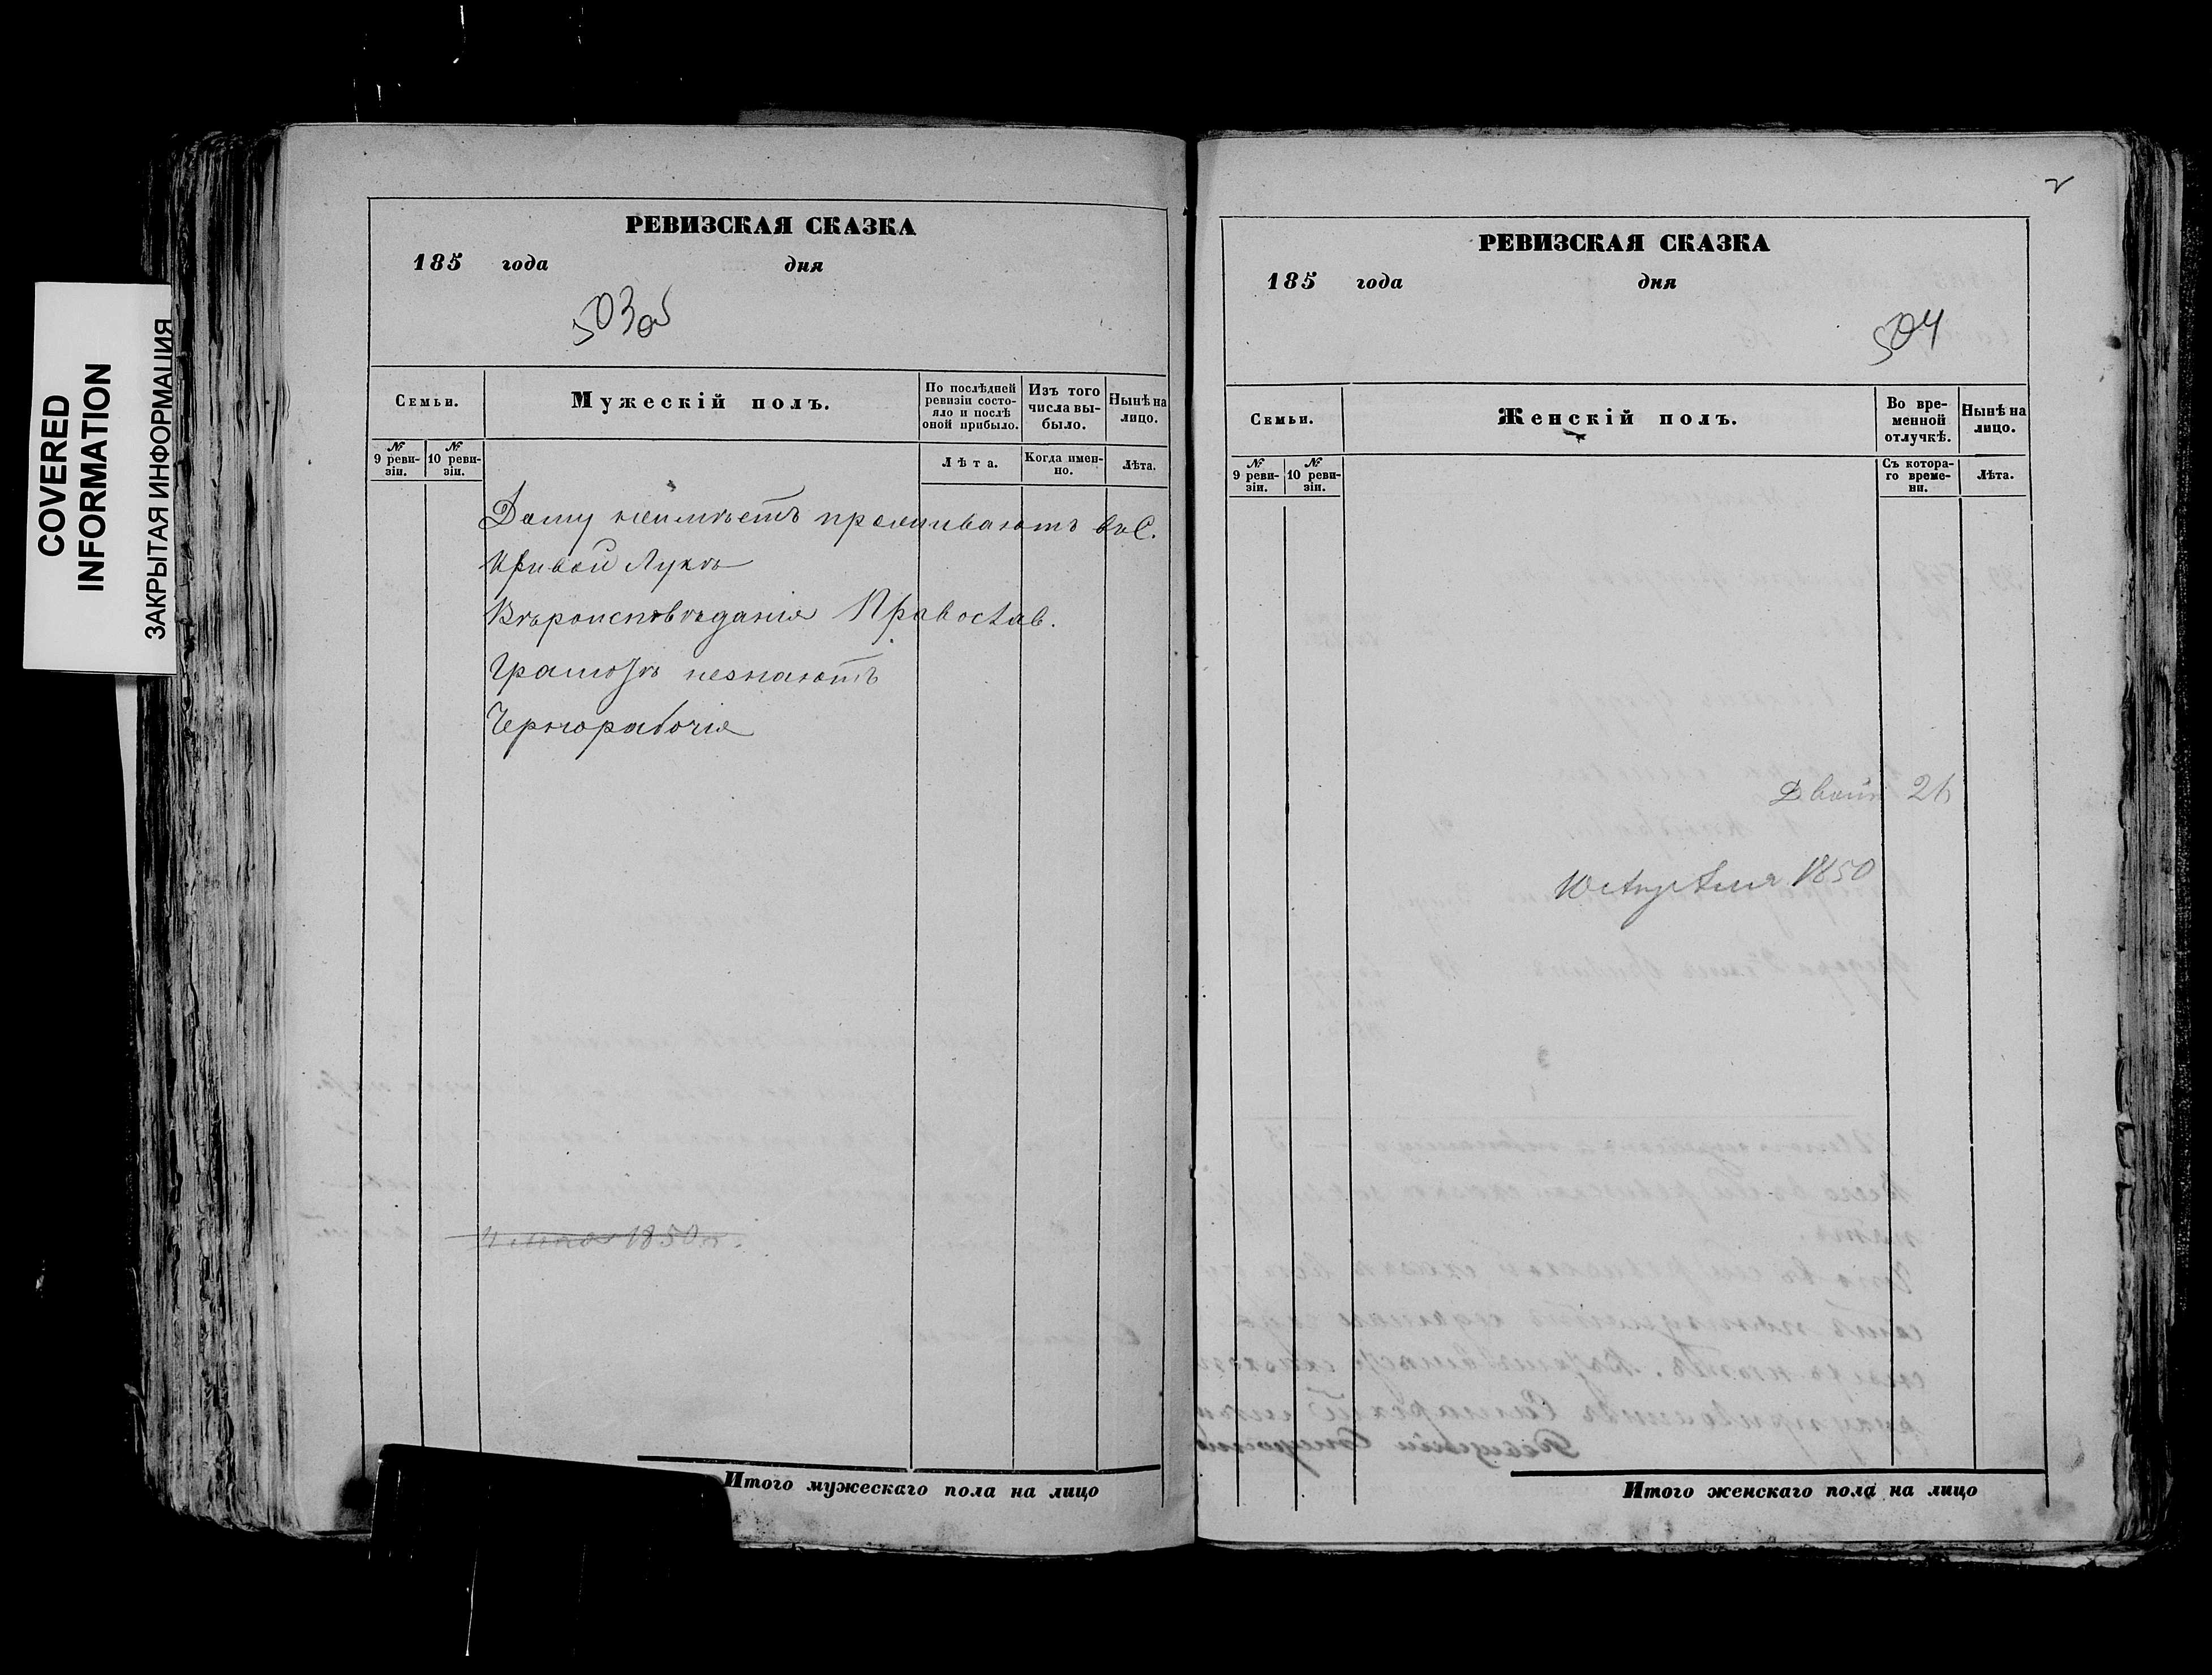 COVERED
INFORMATION
ЗАКРЫТАЯ ИНФОРМАЦИЯ
РЕВИЗСКАЯ СКАЗКА
185 года дня
503об
Семьи.
Мужескій полъ.
По послѣдней ревизіи состояло и послѣ оной прибыло.
Изъ того числа выбыло.
Нынѣ на лицо.
№ 9 ревизіи.
№ 10 ревизіи.
Лѣта.
Когда именно.
Лѣта.
Дому неимѣетъ проживаютъ въ С.
Кривой Лукѣ
Вѣроисповѣданія Православ.
Грамотѣ незнаютъ
Чернорабочіе
1850 г.
Итого мужескаго пола на лицо
2
РЕВИЗСКАЯ СКАЗКА
185 года дня
504
Семьи.
Женскій полъ.
Во временной отлучкѣ.
Нынѣ на лицо.
№ 9 ревизіи.
№ 10 ревизіи.
Съ котораго времени.
Лѣта.
26
1850
Итого женскаго пола на лицо